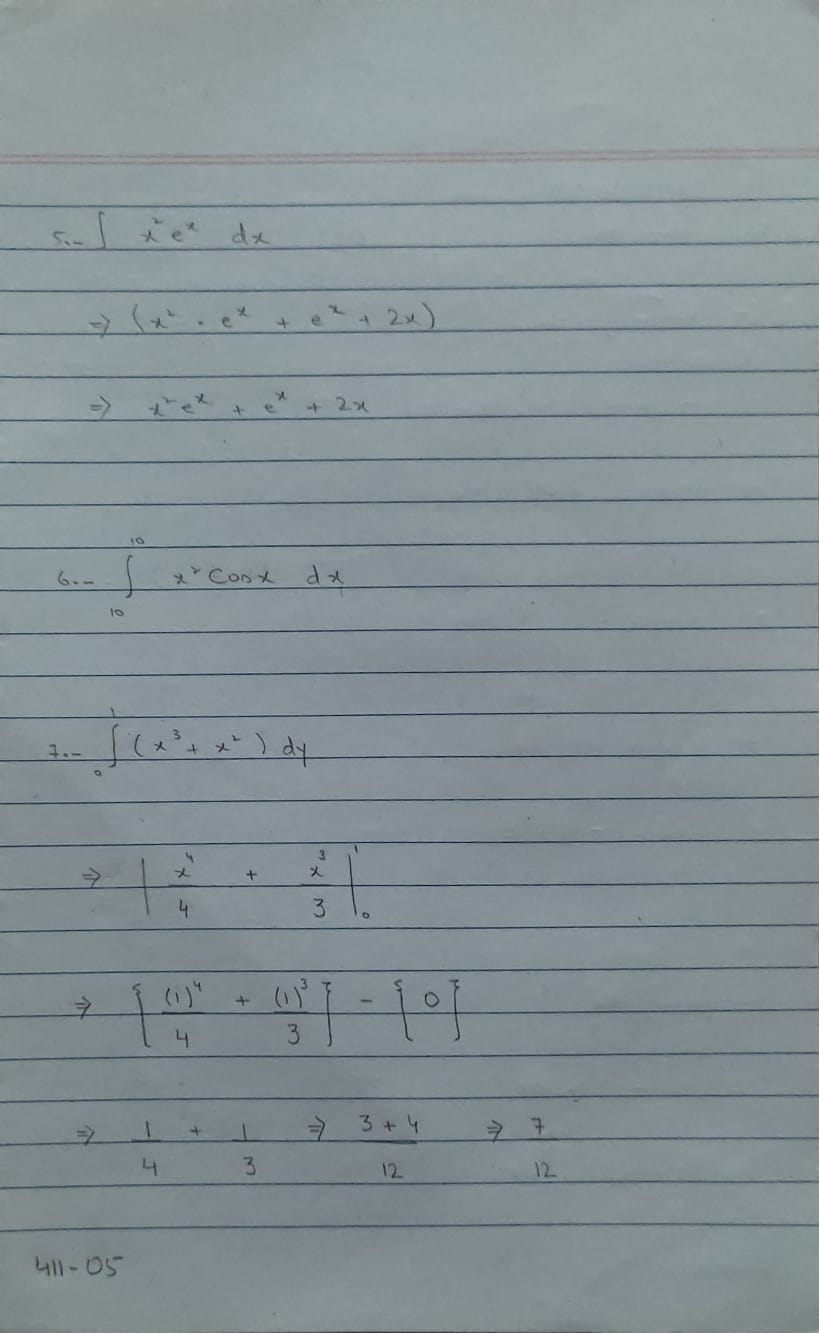 5.- ∫ x² eˣ dx
⇒ (x² · eˣ + eˣ + 2x)
⇒ x² eˣ + eˣ + 2x
6.- ∫₁₀¹⁰ x² Cosx dx
7.- ∫₀¹ (x³ + x²) dy
⇒ | x⁴/4 + x³/3 |₀¹
⇒ [ (1)⁴/4 + (1)³/3 ] - [ 0 ]
⇒ 1/4 + 1/3 ⇒ 3+4/12 ⇒ 7/12
411-05